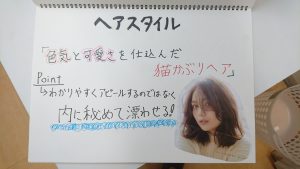 ヘアスタイル
「色気と可愛さを仕込んだ
猫かぶりヘア」
Point
↳わかりやすくアピールするのではなく
内に秘めて漂わせる!